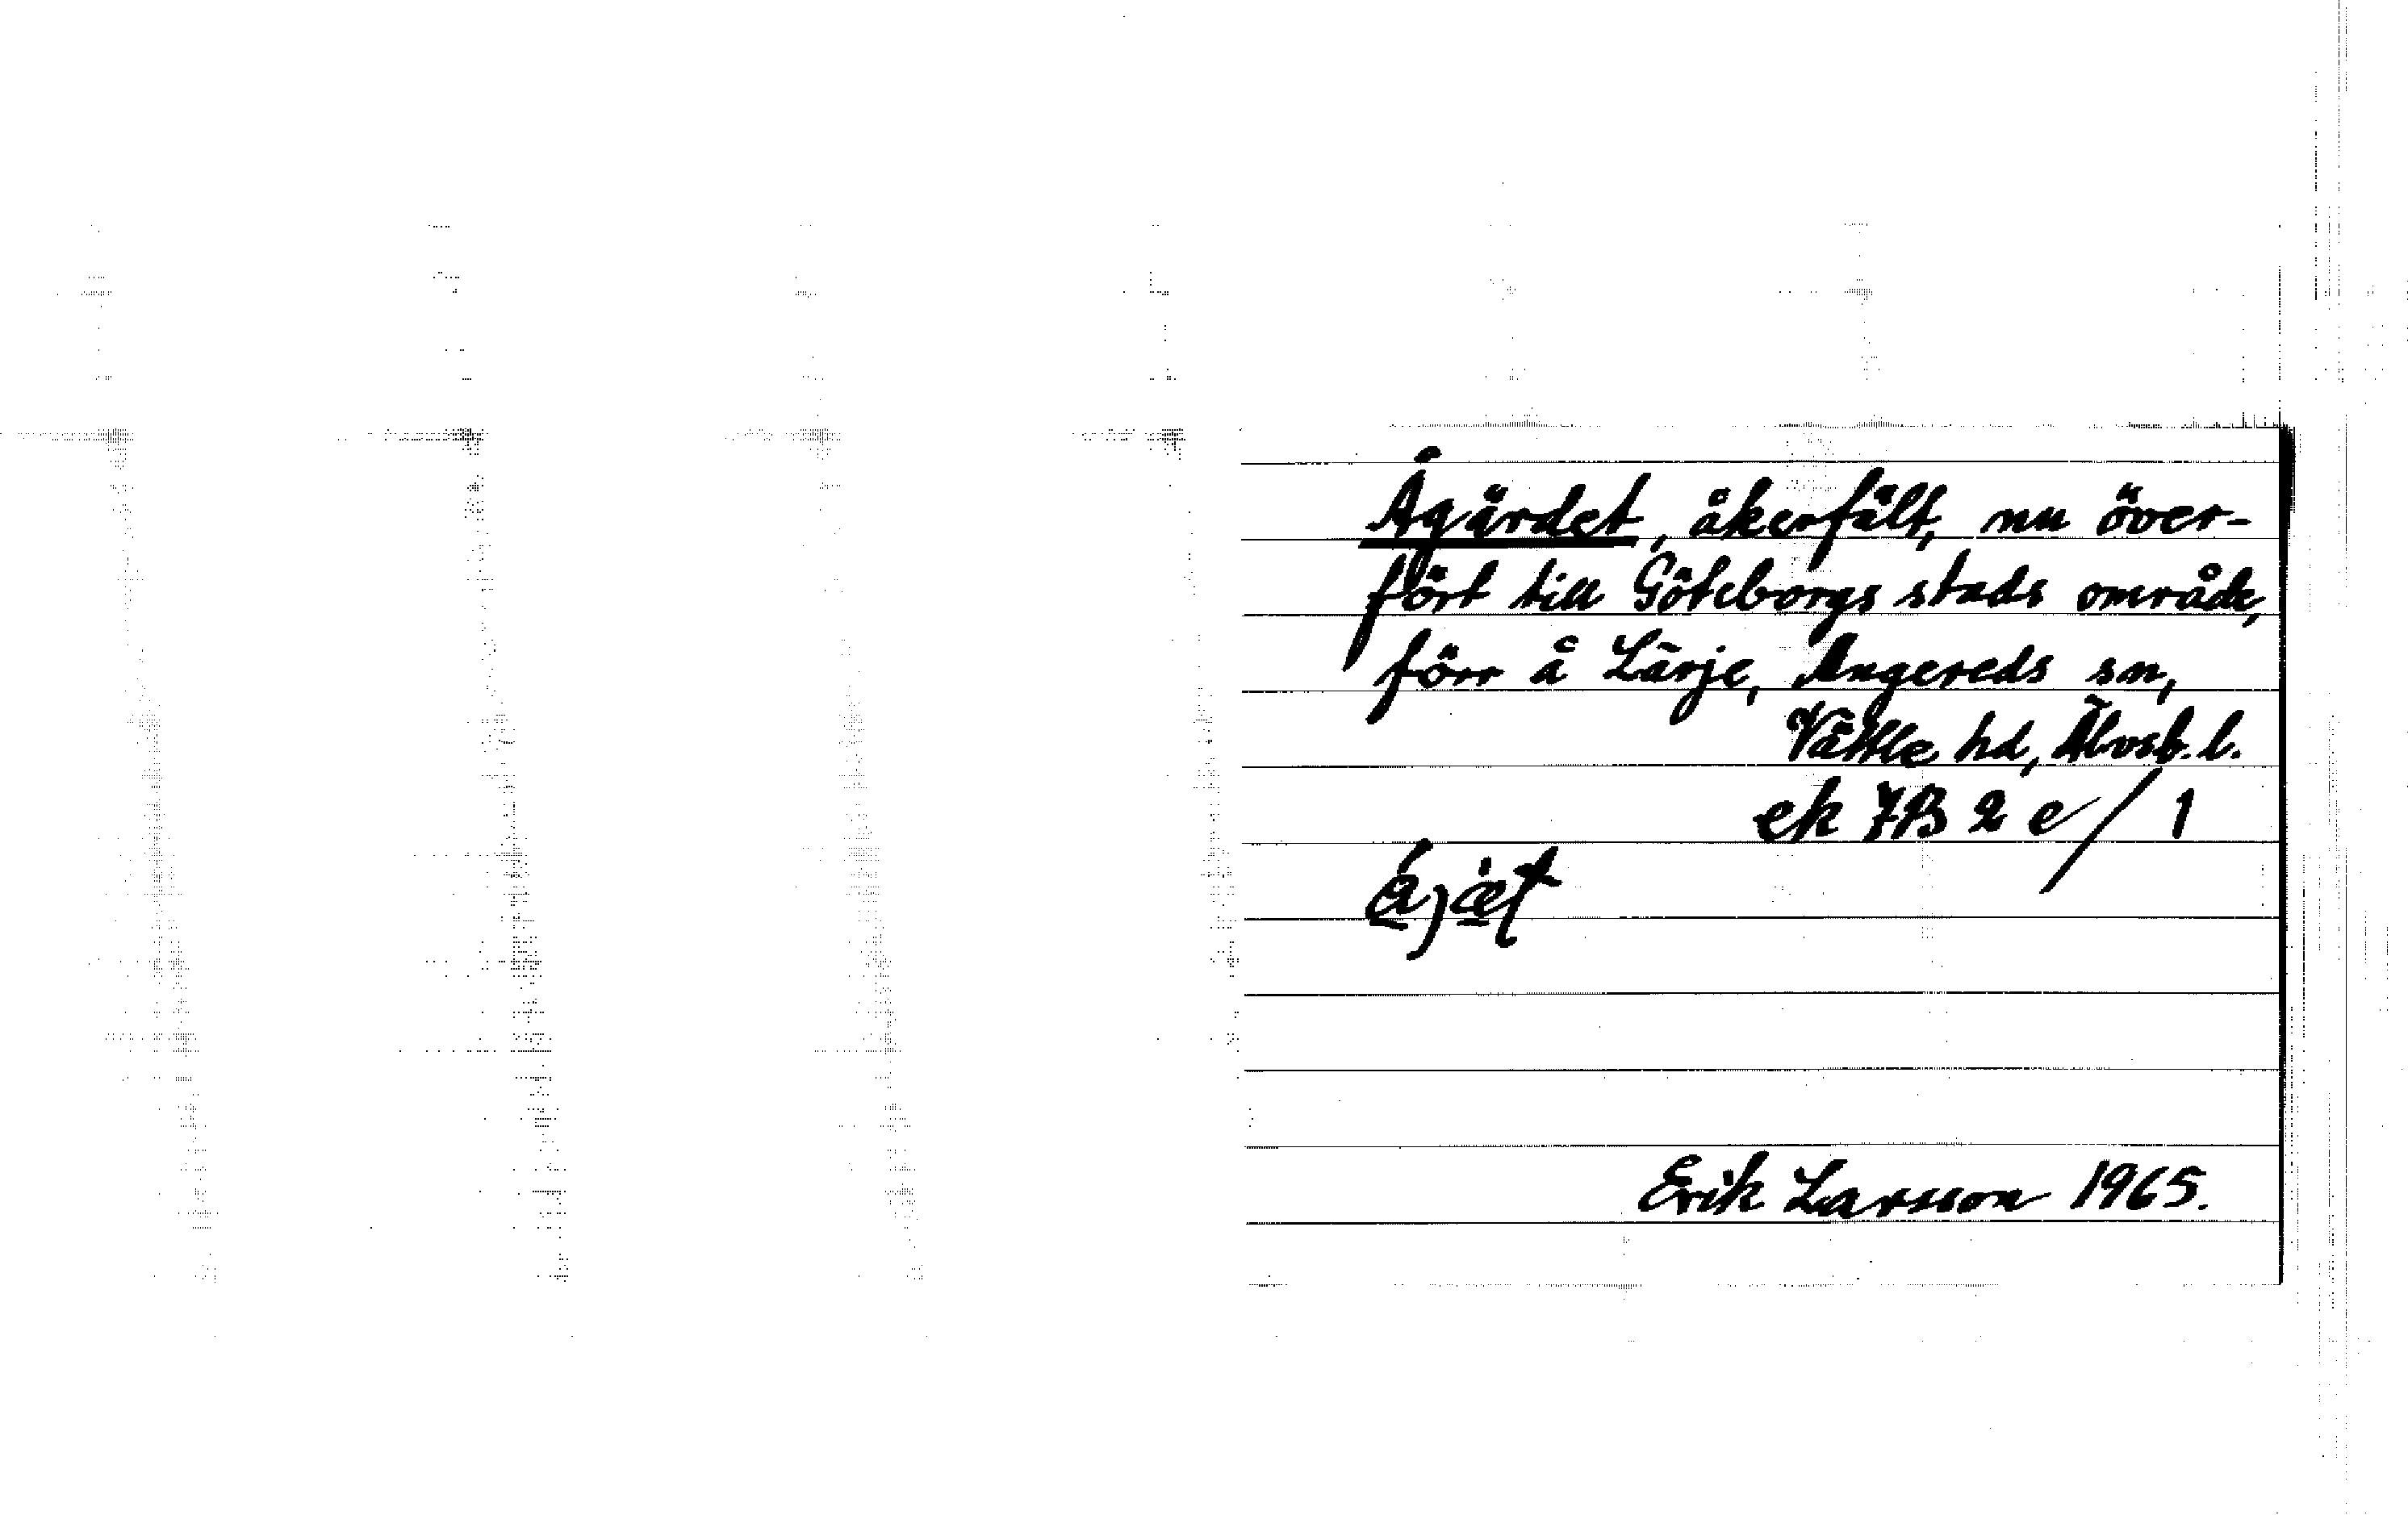 Ågärdet, åkerfält, nu över-
fört till Göteborgs stads område,
förr å Lärje, Angereds sn,
Vättle hd, Älvsb. l.
ek 7B 2 e/1
Erik Larsson 1965.